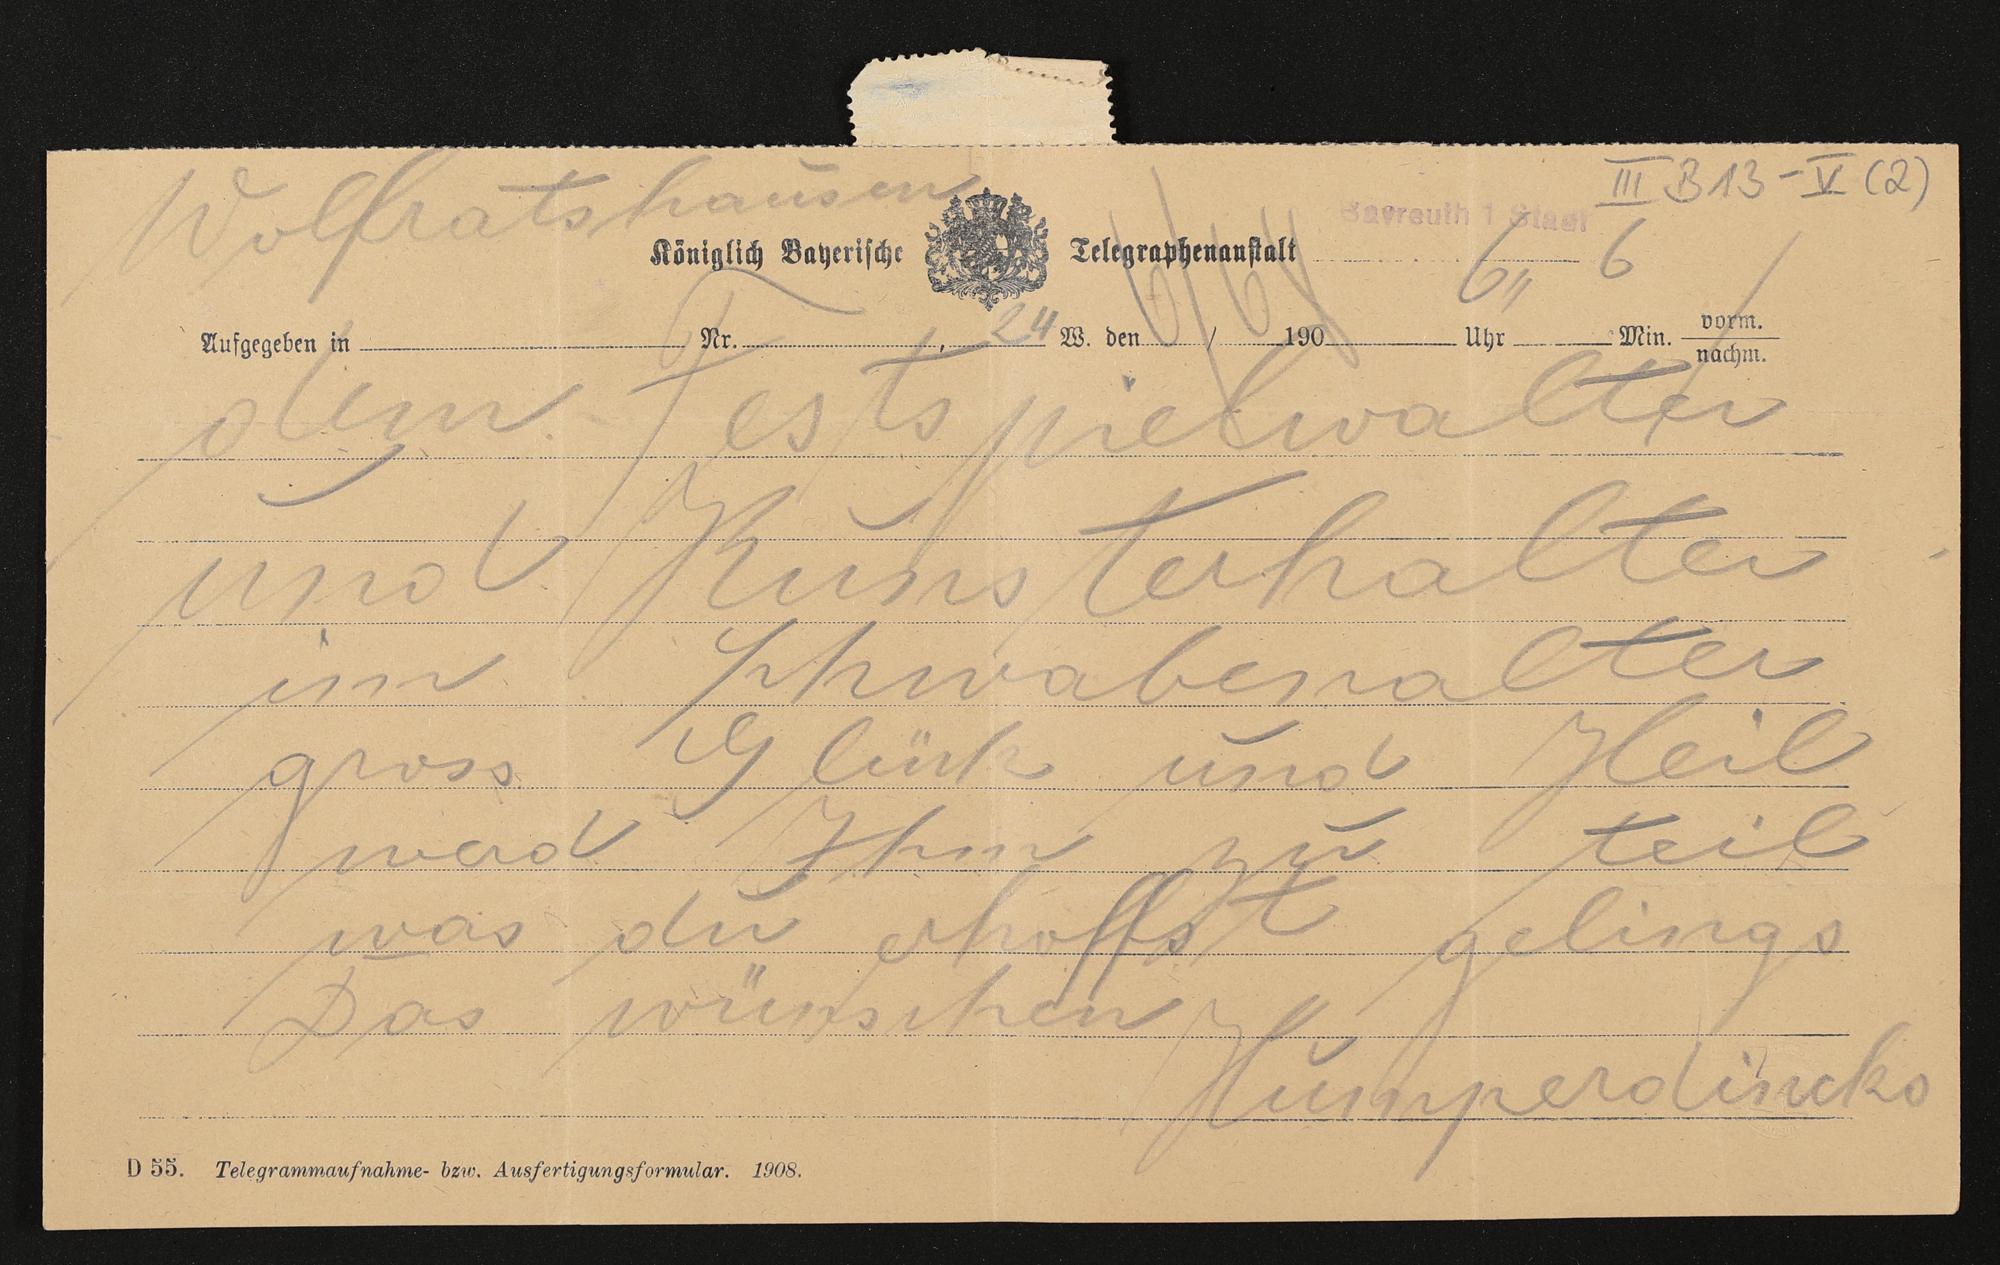 III B 13 - V (2)
Wolfratshausen
Bayreuth 1 Stadt
Königlich Bayerische Telegraphenanstalt
Aufgegeben in Nr. , 24 W. den 6/6 190 Uhr Min. vorm. nachm.
6 11 6
dem Festspielwalter
und Kunsterhalter
im Schwabenalter
gross Glück und Heil
werd Ihm zu teil
was du erhoffst gelings
Das wünschen
Humperdincks
D 55. Telegrammaufnahme- bzw. Ausfertigungsformular. 1908.